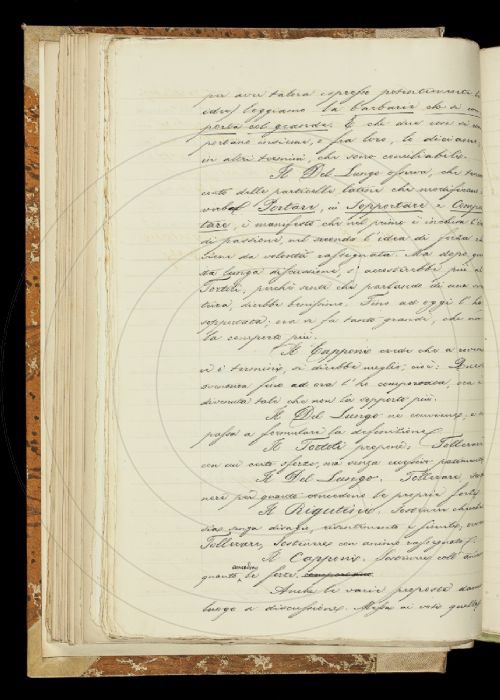 per aver talora espresso
idea) leggiamo la barbarie che si com
porta col grande. E che due cose si com
portano insieme, e fra loro, le diciamo,
in altri termini, che sono conciliabili.
Il Del Lungo osserva, che tenuto
conto delle particelle latine che modificano
verbo Portare, in Sopportare e Compor
tare, è manifesto che nel primo è inchiusa l'idea
di passione, nel secondo l'idea di
volontà rassegnata. Ma dopo
lunga discussione, s'accosterebbe più al
Tortoli, perchè sente che parlando di una
direbbe benissimo: Fino ad oggi l'ho
sopportata; ora si fa tanto grande, che non
la comporto più.
Il Capponi crede che a
si direbbe meglio; cioè: Questa
sventura fino ad ora l'ho comportata, ora è
divenuta tale che non la sopporto più.
Il Del Lungo ne conviene, e si
passa a formulare la definizione
Il Tortoli propone: Tollerare
con un certo sforzo, ma senza
Il Del Lungo. Tollerare, soste
nere per quanto concedono le proprie forze
Il Rigutini. Sostenere checches
sia, senza disagio, risentimento e simili, ovvero
Tollerare, Sostenere con animo rassegnato.
Il Capponi. Sostenere coll'animo
quanto concedono le forze.
Anche le varie proposte danno
luogo a discussione. Messa ai voti quella